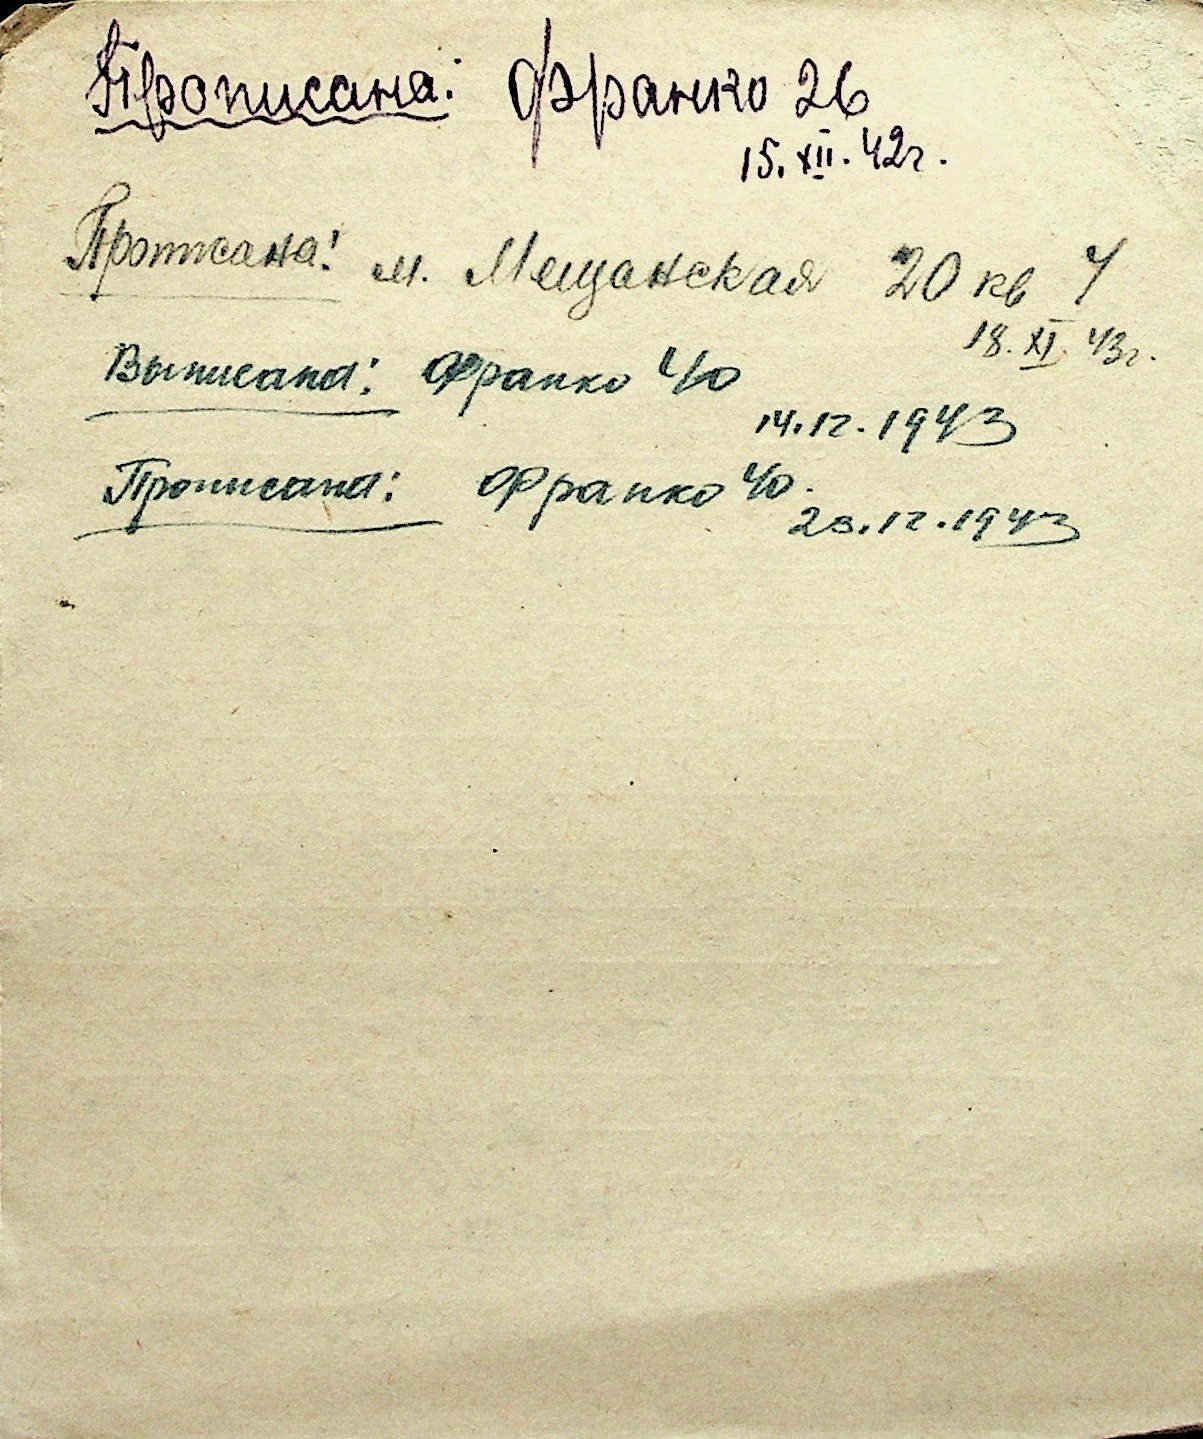 Прописана: Франко 26
15. XII. 42г.
Прописана: м. Мещанская 20 кв 4
18. XI. 43г.
Выписана: Франко 40
14.12.1943
Прописана: Франко 40.
23.12.1943